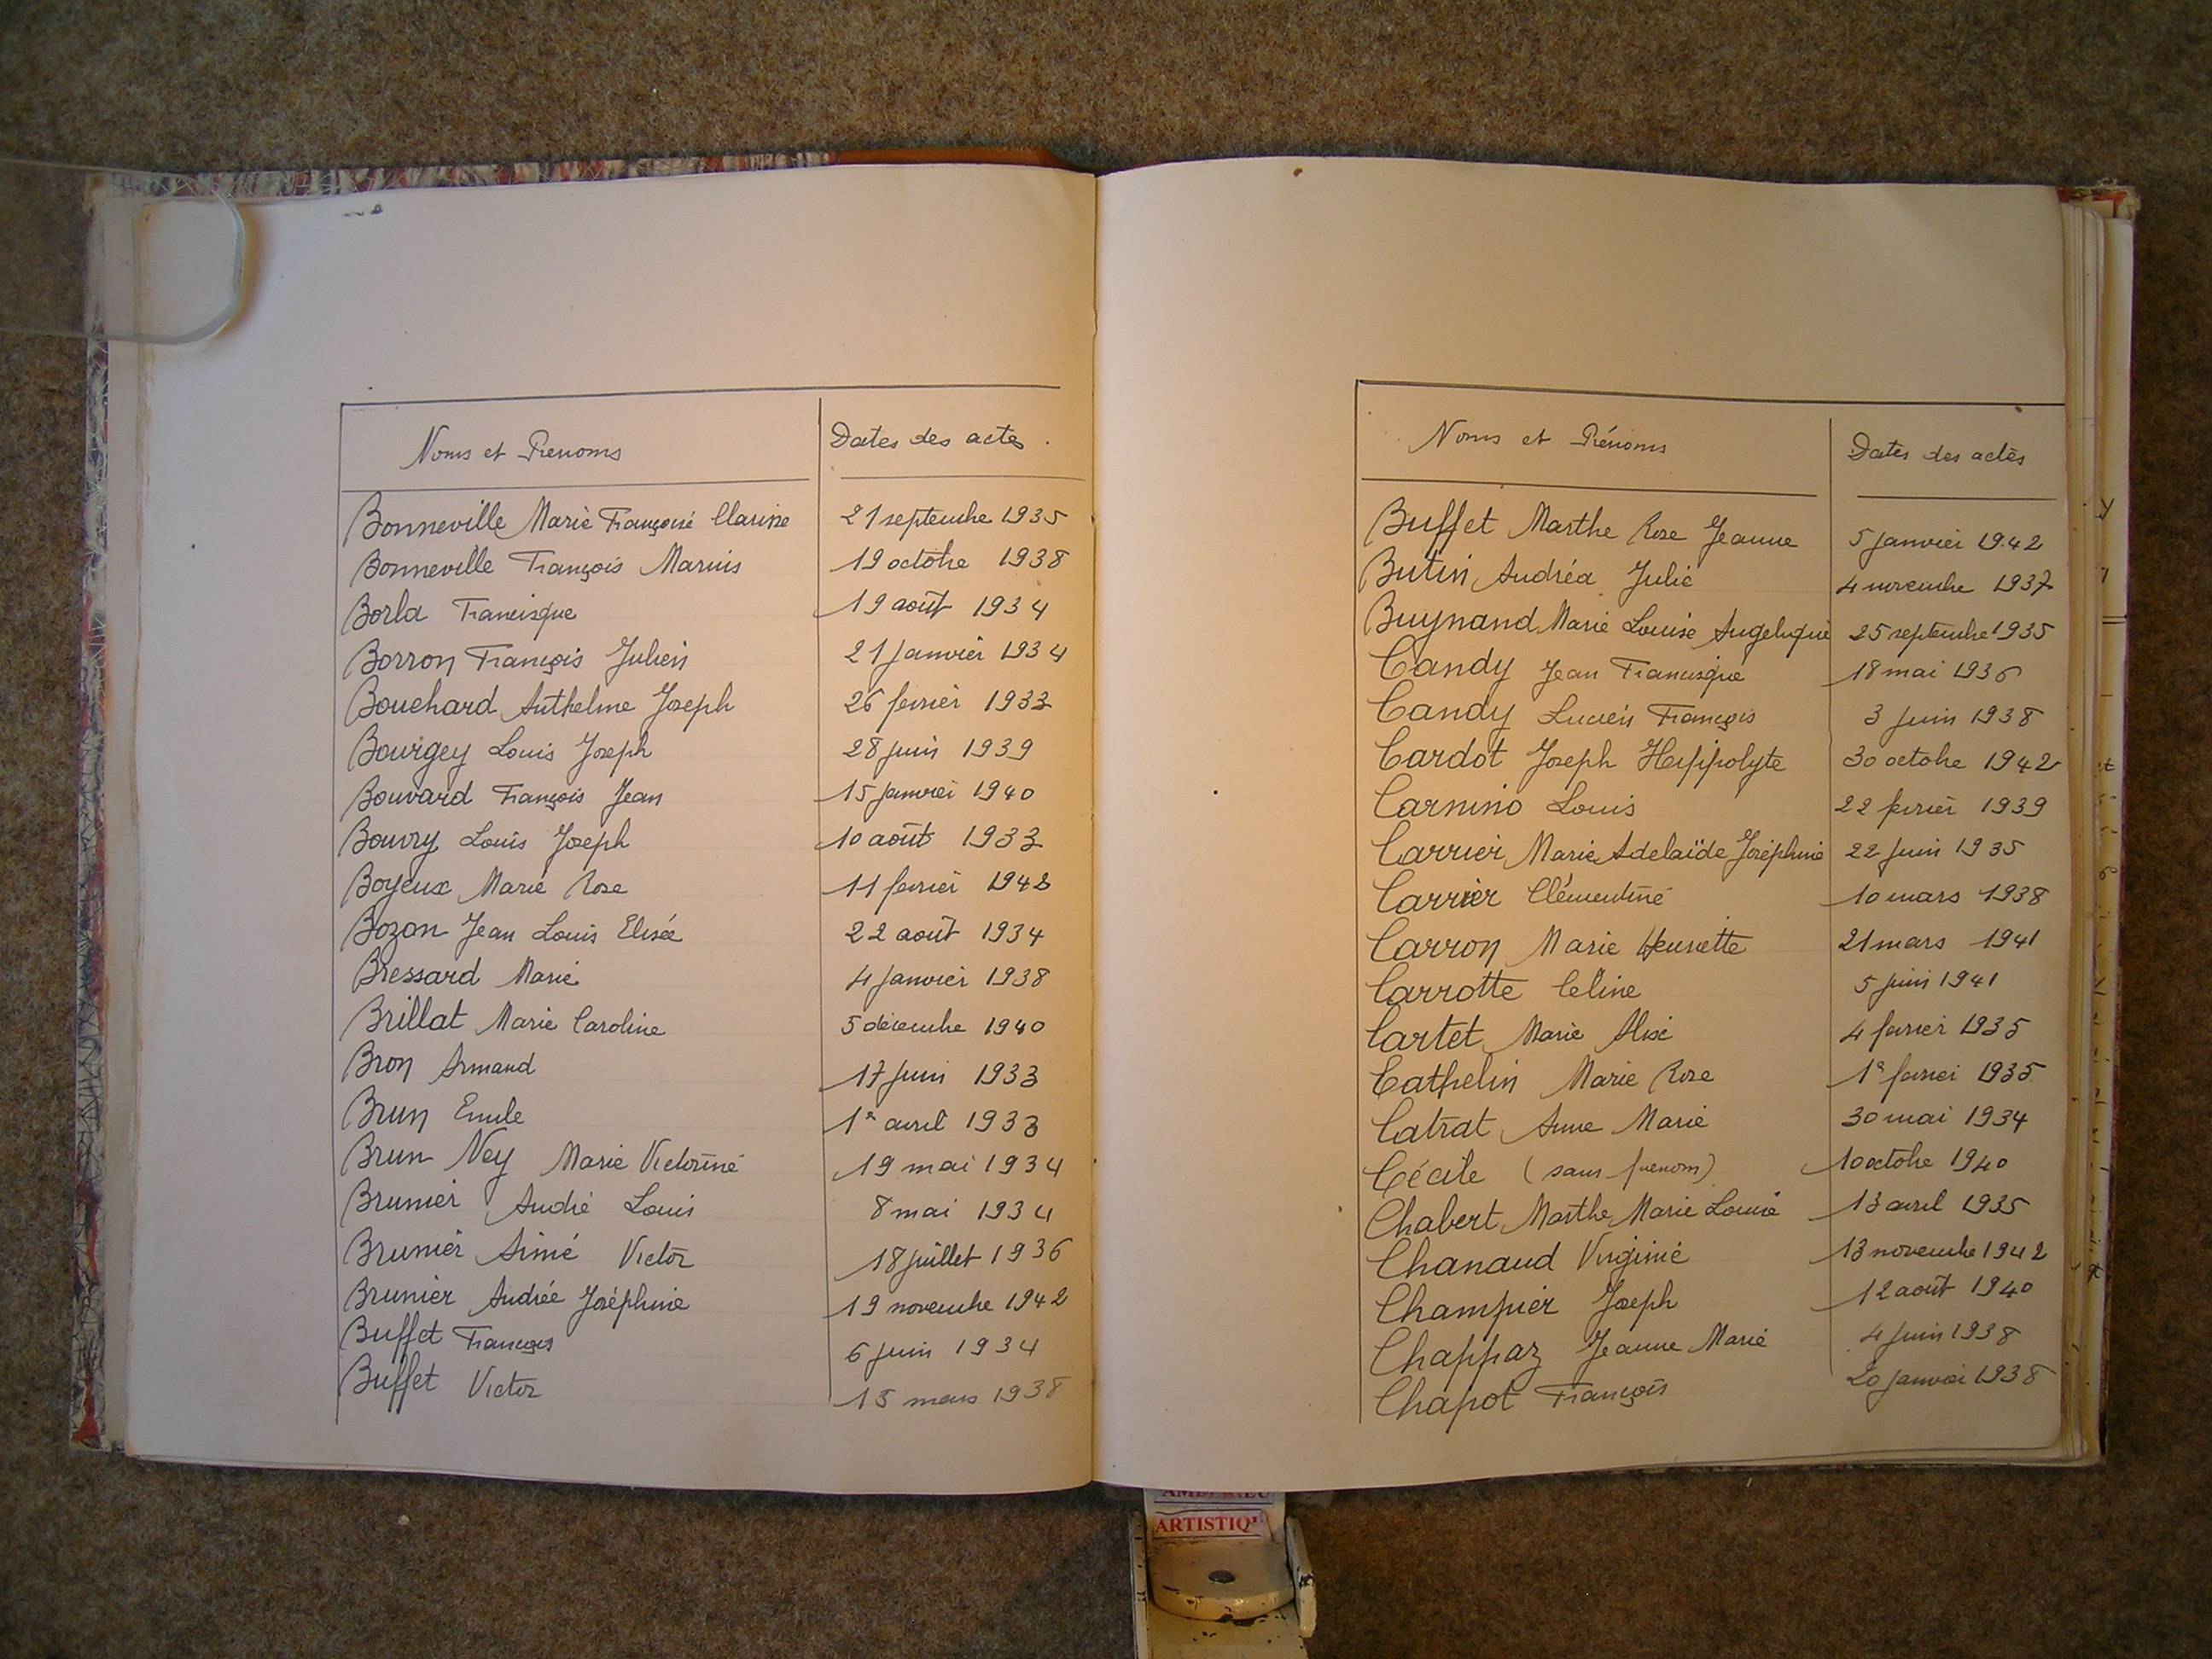 Noms et Prénoms Dates des actes.
Bonneville Marie Françoise Clarisse 21 septembre 1935
Bonneville François Marius 19 octobre 1938
Borla Francisque 19 août 1934
Borron François Julien 21 janvier 1934
Bouchard Anthelme Joseph 26 fevrier 1933
Bourgey Louis Joseph 28 juin 1939
Bouvard François Jean 15 janvier 1940
Bouvry Louis Joseph 10 août 1933
Boyeux Marie Rose 11 fevrier 1942
Bozon Jean Louis Elisée 22 août 1934
Bressard Marie 4 janvier 1938
Brillat Marie Caroline 5 décembre 1940
Bron Armand 17 juin 1933
Brun Emile 1er avril 1933
Brun Ney Marie Victorine 19 mai 1934
Brunier André Louis 8 mai 1934
Brunier Aimé Victor 18 juillet 1936
Brunier Andrée Joséphine 19 novembre 1942
Buffet François 6 juin 1934
Buffet Victor mars 1938
Noms et Prénoms Dates des actes
Buffet Marthe Rose Jeanne 5 janvier 1942
Butin Andréa Julie 4 novembre 1937
Buynand Marie Louise Angelique 25 septembre 1935
Candy Jean Francisque 18 mai 1936
Candy Lucien François 3 juin 1938
Cardot Joseph Hippolyte 30 octobre 1942
Carnino Louis 22 fevrier 1939
Carrier Marie Adelaïde Joséphine 22 juin 1935
Carrier Clémentine 10 mars 1938
Carron Marie Henriette 21 mars 1941
Carrotte Celine 5 juin 1941
Cartet Marie Alix 4 fevrier 1935
Cathelin Marie Rose 1er fevrier 1935
Catrat Anne Marie 30 mai 1934
Cécile (sans prenom) 10 octobre 1940
Chabert Marthe Marie Louise 13 avril 1935
Chanaud Virginie 13 novembre 1942
Champier Joseph 12 août 1940
Chappaz Jeanne Marie 4 juin 1938
Chapot François 20 janvier 1938
ARTISTIQ